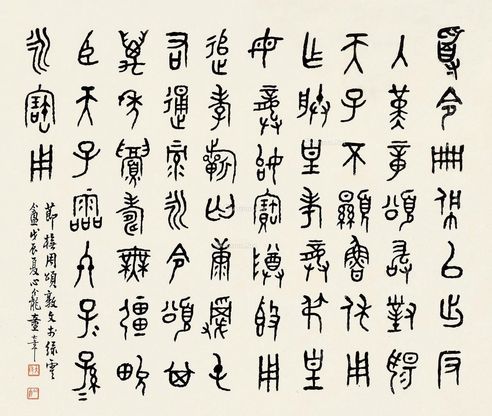 受令冊佩以出反
入堇章頌敢對揚
天子不顯魯休用
乍朕皇考龔叔皇
母龔姒寶尊𣪘用
追孝祈匄康屯
右通彔永令頌其
萬年眉壽無疆畯
臣天子霝冬子〻孫〻
永寶用
節橅周頌敦文於綠雲
盦戊辰夏心龍童